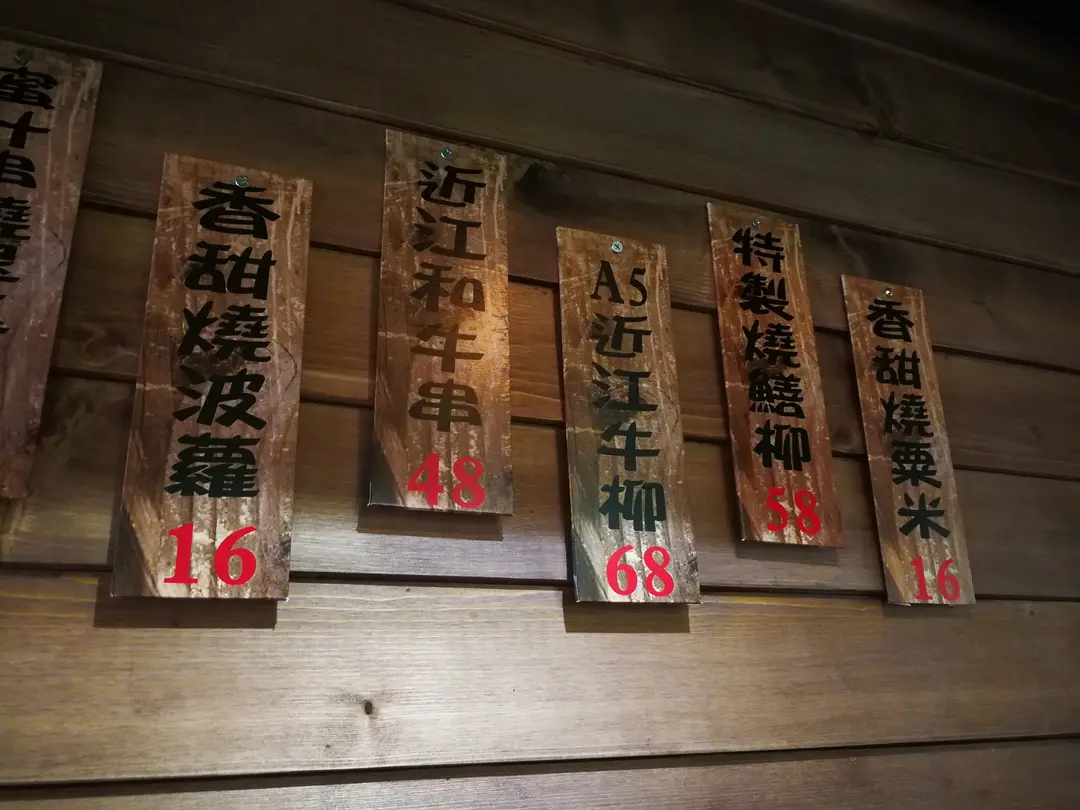 蜜汁串燒
香甜燒波蘿
16
近江和牛串
48
A5近江牛柳
68
特製燒鱔柳
58
香甜燒粟米
16